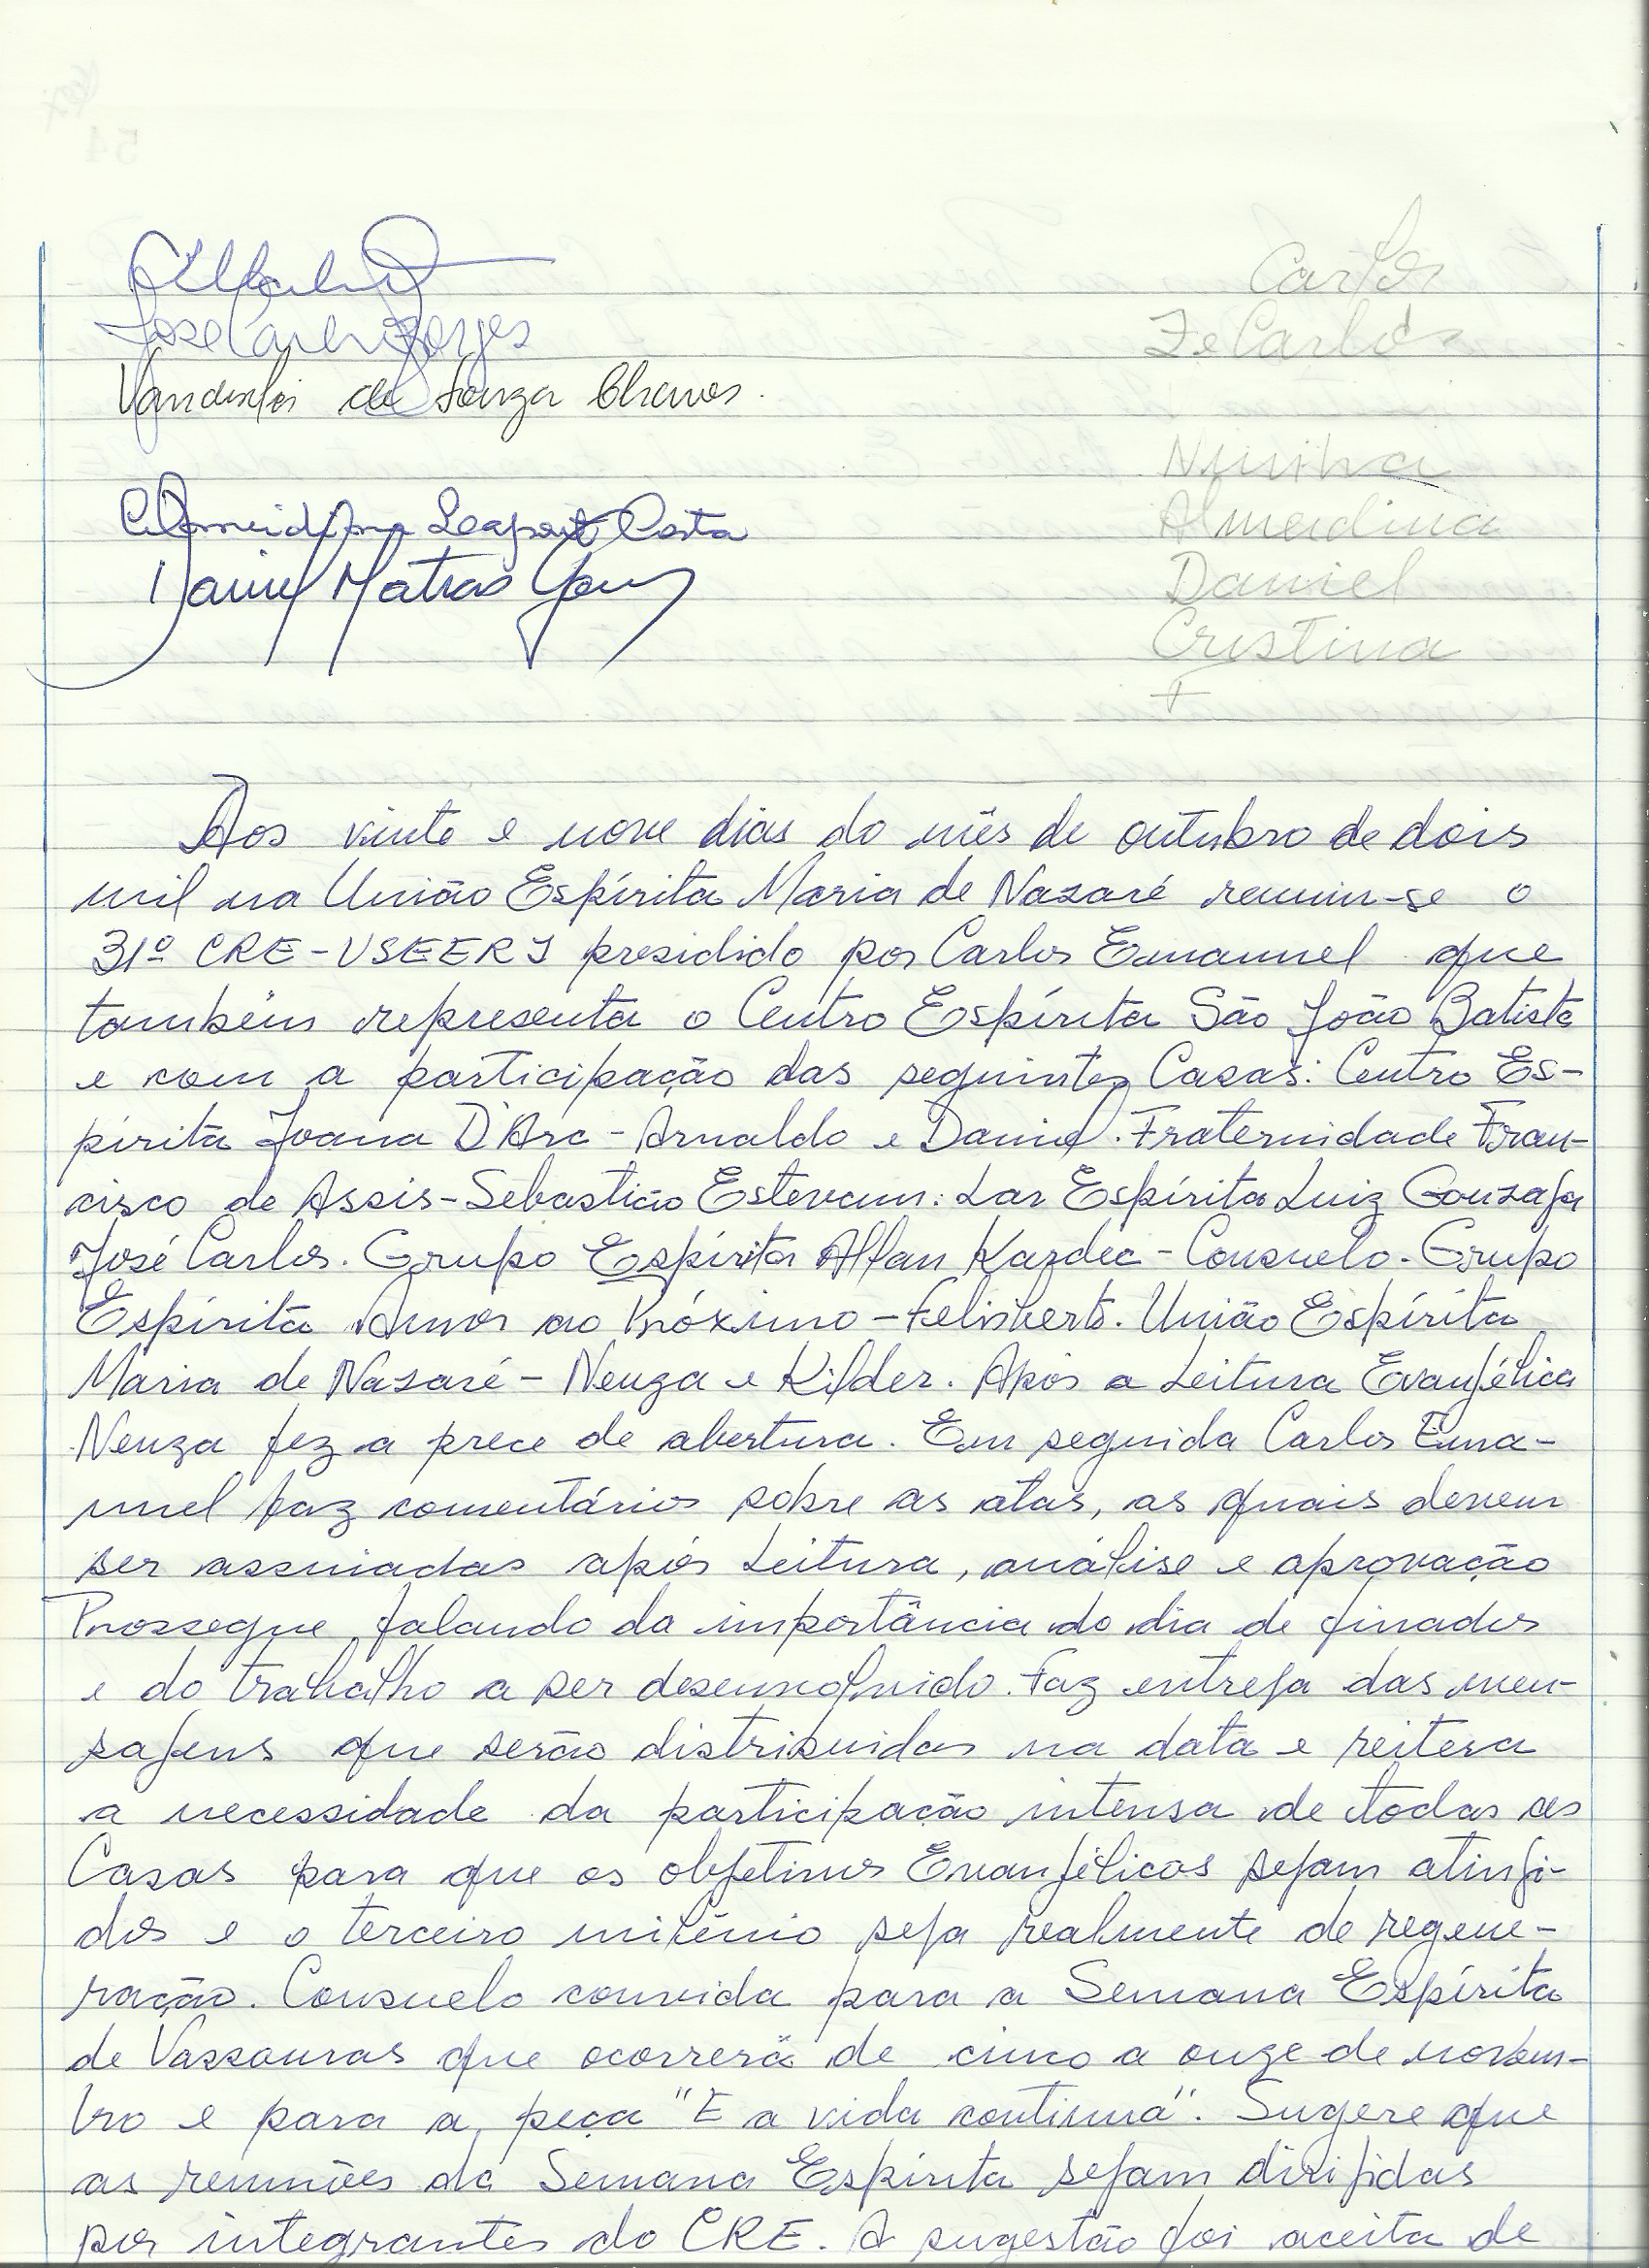 Carlos
José Carlos Borges
Zé Carlos
Vanderlei de Souza Chaves.
Ninilva
Costa
Almerdina
Daniel Matias
Daniel
Cristina
Aos vinte e nove dias do mês de outubro de dois
mil na União Espírita Maria de Nazaré reuniu-se o
31º CRE-USEERJ presidido por Carlos Emanuel que
também representa o Centro Espírita São João Batista
e com a participação das seguintes Casas: Centro Es-
pírita Joana D'Arc - Arnaldo e Daniel. Fraternidade Fran-
cisco de Assis - Sebastião Estevam. Lar Espírita Luiz Gonzaga
José Carlos. Grupo Espírita Allan Kardec - Consuelo. Grupo
Espírita Amor ao Próximo - Felisberto. União Espírita
Maria de Nazaré - Neuza e Kilder. Após a Leitura Evangélica
Neuza fez a prece de abertura. Em seguida Carlos Ema-
nuel faz comentários sobre as atas, as quais devem
ser assinadas após Leitura, análise e aprovação
Prossegue falando da importância do dia de finados
e do trabalho a ser desenvolvido. Faz entrega das men-
sagens que serão distribuidas na data e reitera
a necessidade da participação intensa de todas as
Casas para que os objetivos Evangélicos sejam atingi-
dos e o terceiro milênio seja realmente de regene-
ração. Consuelo convida para a Semana Espírita
de Vassouras que ocorrerá de cinco a onze de novem-
bro e para a peça "E a vida continua". Sugere que
as reuniões da Semana Espírita sejam dirigidas
por integrantes do CRE. A sugestão foi aceita de